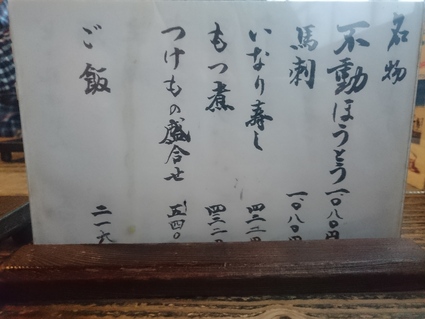 名物
不動ほうとう 一〇八〇円
馬刺 一〇八〇円
いなり寿し 四三二円
もつ煮 四三二円
つけもの盛合せ 五四〇
ご飯 二一六